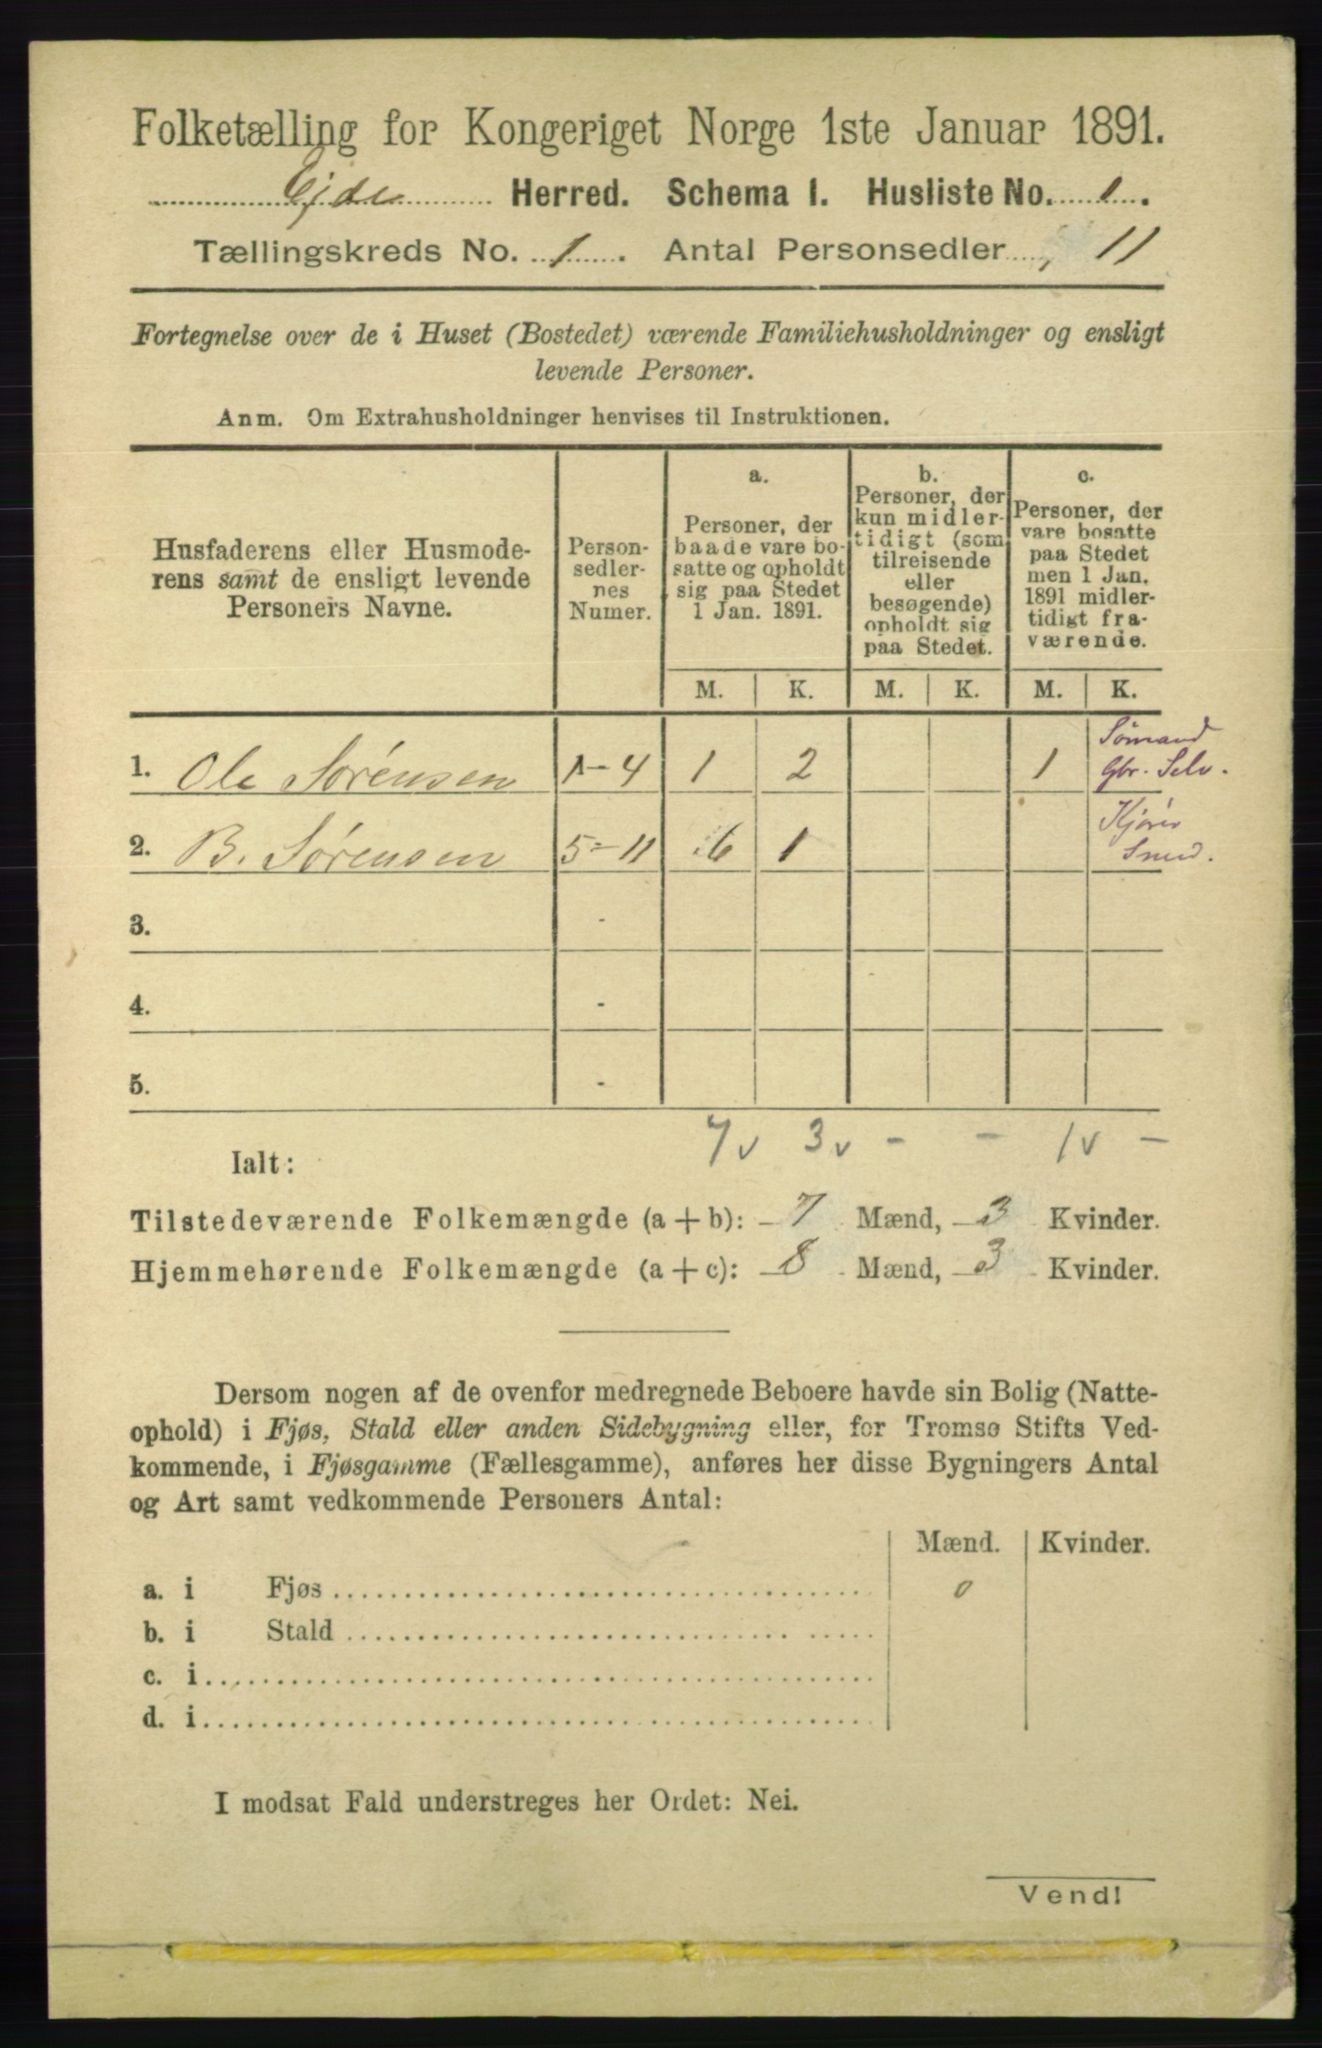 Folketælling for Kongeriget Norge 1ste Januar 1891.
Ejde Herred. Schema I. Husliste No. 1.
Tællingskreds No. 1. Antal Personsedler 11
Fortegnelse over de i Huset (Bostedet) værende Familiehusholdninger og ensligt
levende Personer.
Anm. Om Extrahusholdninger henvises til Instruktionen.
Husfaderens eller Husmode-
rens samt de ensligt levende
Personers Navne.
Person-
sedler-
nes
Numer.
a.
Personer, der
baade vare bo-
satte og opholdt
sig paa Stedet
1 Jan. 1891.
b.
Personer, der
kun midler-
tidigt (som
tilreisende
eller
besøgende)
opholdt sig
paa Stedet.
c.
Personer, der
vare bosatte
paa Stedet
men 1 Jan.
1891 midler-
tidigt fra-
værende.
M. K. M. K. M. K.
1. Ole Sørensen 1-4 1 2 1 Sömand
Gbr. Selv.
2. B. Sørensen 5-11 6 1
Smed.
3. -
4. -
5. -
Ialt: 7v 3v - - 1v -
Tilstedeværende Folkemængde (a+b): 7 Mænd, 3 Kvinder.
Hjemmehørende Folkemængde (a+c): 8 Mænd, 3 Kvinder.
Dersom nogen af de ovenfor medregnede Beboere havde sin Bolig (Natte-
ophold) i Fjøs, Stald eller anden Sidebygning eller, for Tromsø Stifts Ved-
kommende, i Fjøsgamme (Fællesgamme), anføres her disse Bygningers Antal
og Art samt vedkommende Personers Antal:
Mænd. Kvinder.
a. i Fjøs 0
b. i Stald
c. i
d. i
I modsat Fald understreges her Ordet: Nei.
Vend!